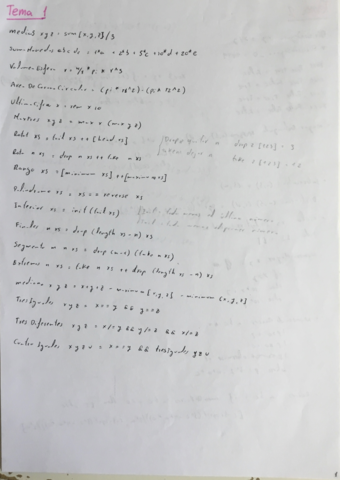 Tema 1
media3 x y z = sum [x,y,z]/3
sumaMonedas a b c d e = 1*a + 2*b + 5*c + 10*d + 20*e
volumenEsfera r = 4/3 * pi * r^3
AreaDeCoronaCircular = (pi * r2^2) - (pi * r1^2)
ultimaCifra x = rem x 10
Maxtres x y z = max x (max y z)
Rota1 xs = tail xs ++ [head xs]
Rota n xs = drop n xs ++ take n xs
Rango xs = [minimum xs] ++ [maximum xs]
Palindromo xs = xs == reverse xs
Interior xs = init (tail xs)
Finales n xs = drop (length xs - n) xs
Segmento m n xs = drop (m-1) (take n xs)
Extremos n xs = take n xs ++ drop (length xs - n) xs
mediano x y z = x+y+z - minimum [x,y,z] - maximum [x,y,z]
TresIguales x y z = x==y && y==z
TresDiferentes x y z = x/=y && y/=z && x/=z
CuatroIguales x y z u = x==y && tresIguales y z u